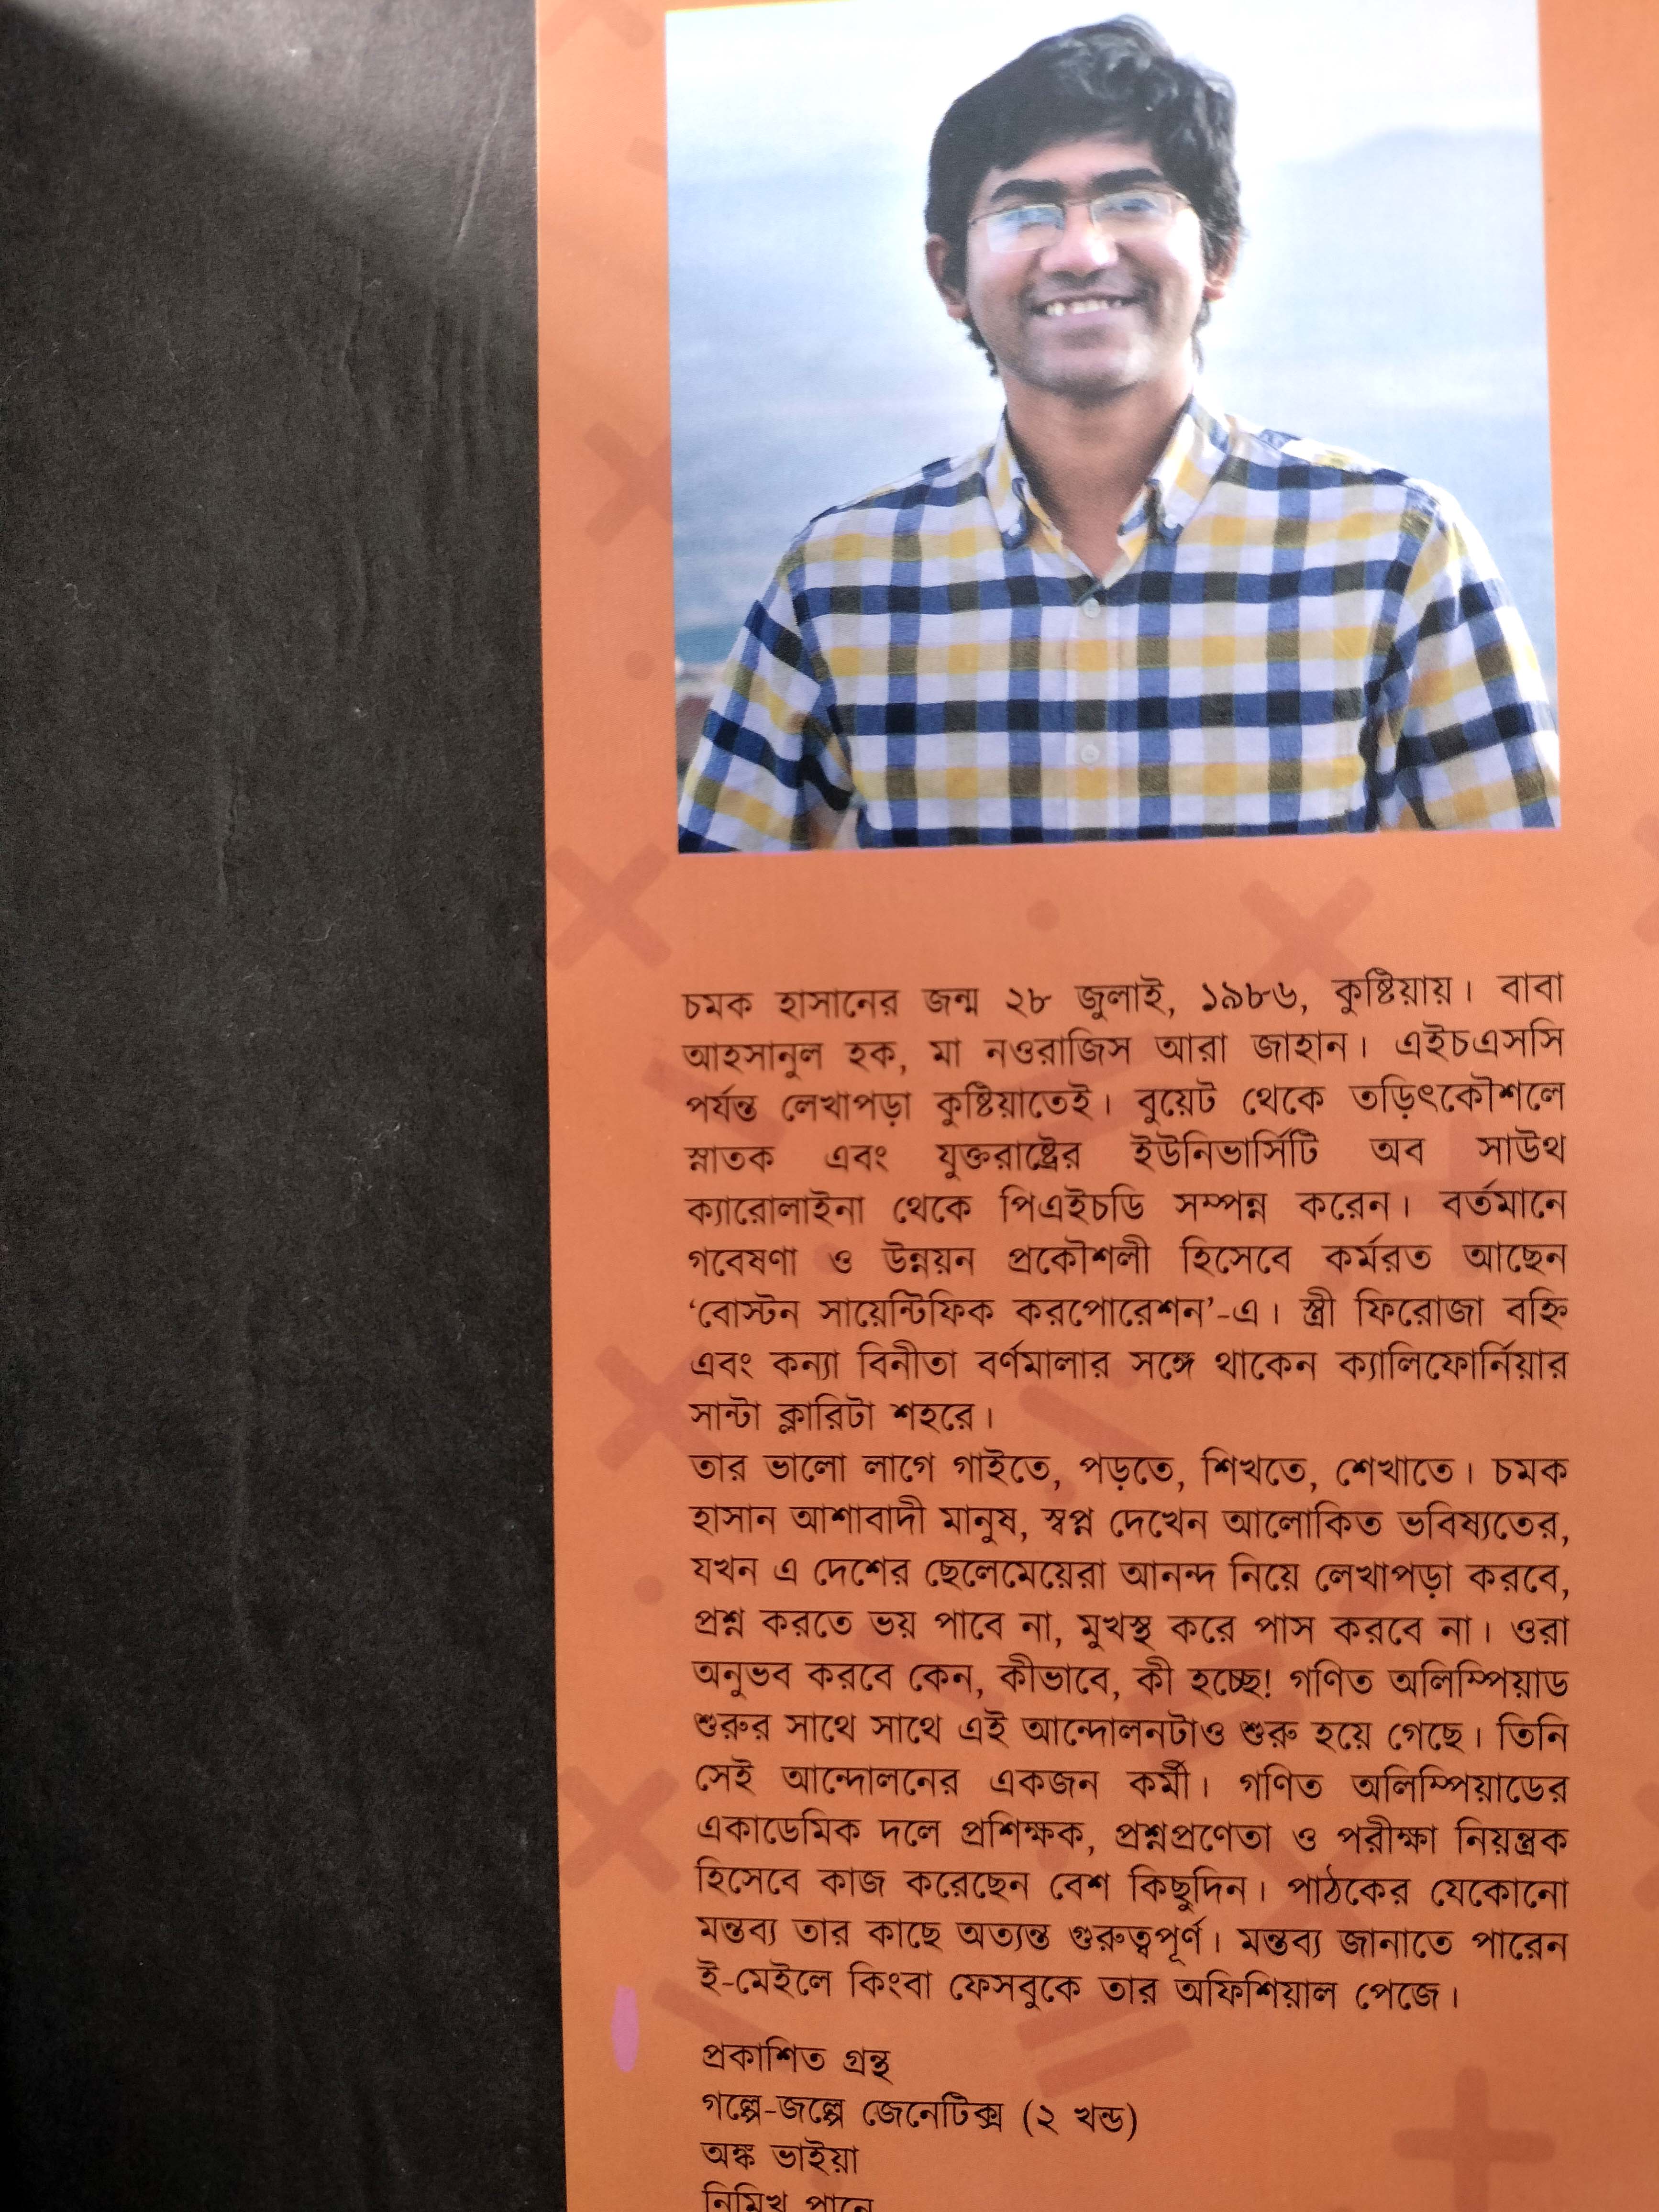 চমক হাসানের জন্ম ২৮ জুলাই, ১৯৮৬, কুষ্টিয়ায়। বাবা
আহসানুল হক, মা নওরাজিস আরা জাহান। এইচএসসি
পর্যন্ত লেখাপড়া কুষ্টিয়াতেই। বুয়েট থেকে তড়িৎকৌশলে
স্নাতক এবং যুক্তরাষ্ট্রের ইউনিভার্সিটি অব সাউথ
ক্যারোলাইনা থেকে পিএইচডি সম্পন্ন করেন। বর্তমানে
গবেষণা ও উন্নয়ন প্রকৌশলী হিসেবে কর্মরত আছেন
‘বোস্টন সায়েন্টিফিক করপোরেশন’-এ। স্ত্রী ফিরোজা বহ্নি
এবং কন্যা বিনীতা বর্ণমালার সঙ্গে থাকেন ক্যালিফোর্নিয়ার
সান্টা ক্লারিটা শহরে।
তার ভালো লাগে গাইতে, পড়তে, শিখতে, শেখাতে। চমক
হাসান আশাবাদী মানুষ, স্বপ্ন দেখেন আলোকিত ভবিষ্যতের,
যখন এ দেশের ছেলেমেয়েরা আনন্দ নিয়ে লেখাপড়া করবে,
প্রশ্ন করতে ভয় পাবে না, মুখস্থ করে পাস করবে না। ওরা
অনুভব করবে কেন, কীভাবে, কী হচ্ছে! গণিত অলিম্পিয়াড
শুরুর সাথে সাথে এই আন্দোলনটাও শুরু হয়ে গেছে। তিনি
সেই আন্দোলনের একজন কর্মী। গণিত অলিম্পিয়াডের
একাডেমিক দলে প্রশিক্ষক, প্রশ্নপ্রণেতা ও পরীক্ষা নিয়ন্ত্রক
হিসেবে কাজ করেছেন বেশ কিছুদিন। পাঠকের যেকোনো
মন্তব্য তার কাছে অত্যন্ত গুরুত্বপূর্ণ। মন্তব্য জানাতে পারেন
ই-মেইলে কিংবা ফেসবুকে তার অফিশিয়াল পেজে।
প্রকাশিত গ্রন্থ
গল্পে-জল্পে জেনেটিক্স (২ খন্ড)
অঙ্ক ভাইয়া
নিমিখ পানে